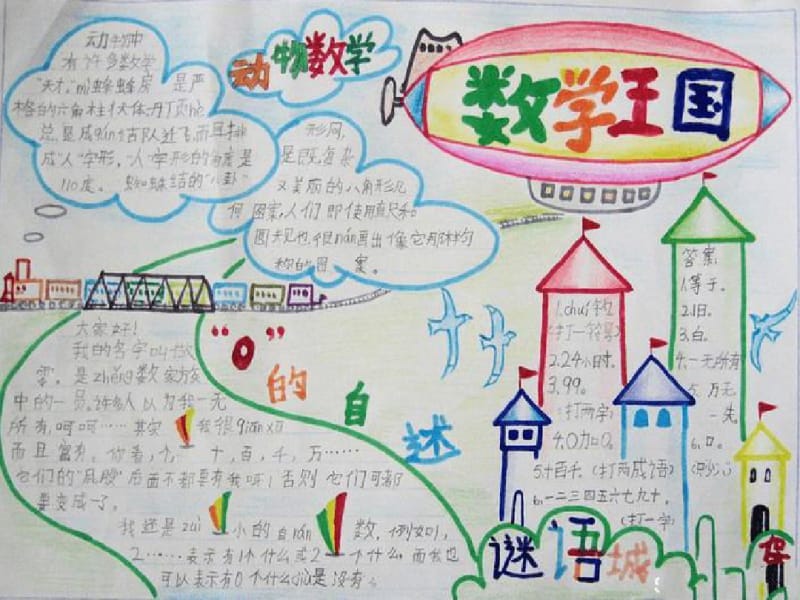 动物数学
数学王国
动物中
有许多数学
"天才",蜂蜂房是严
格的六角柱状体,丹顶hè
总是成qún结队迁飞,而且排
成"人"字形,"人"字形的角度是
110度。蜘蛛结的"八卦"
形网,
是既复杂
又美丽的八角形几
何图案,人们即使用直尺和
圆规也很nán画出像它那样匀
称的图案。
"0"的自述
大家好!
我的名字叫做
零,是zhěng数家族
中的一员。许多人以为我一无
所有,呵呵……其实我很qiān xū
而且富有。你看,个、十,百,千,万……
它们的"屁股"后面不都要有我呀!否则它们可都
要变成一了。
我还是zuì小的自rán数,例如1,
2……表示有1个什么或2个什么,而我也
可以表示有0个什么jiù是没有。
1.chuí钩
(打一符号)
2.24小时。
3.99。
(打两字)
4.0加0。
5.十百千。(打两成语)
6.一二三四五六七九十。
(打一字)
答案:
1.等于。
2.旧。
3.白。
4.一无所有
5.万无
一失。
6.口。
谜语城